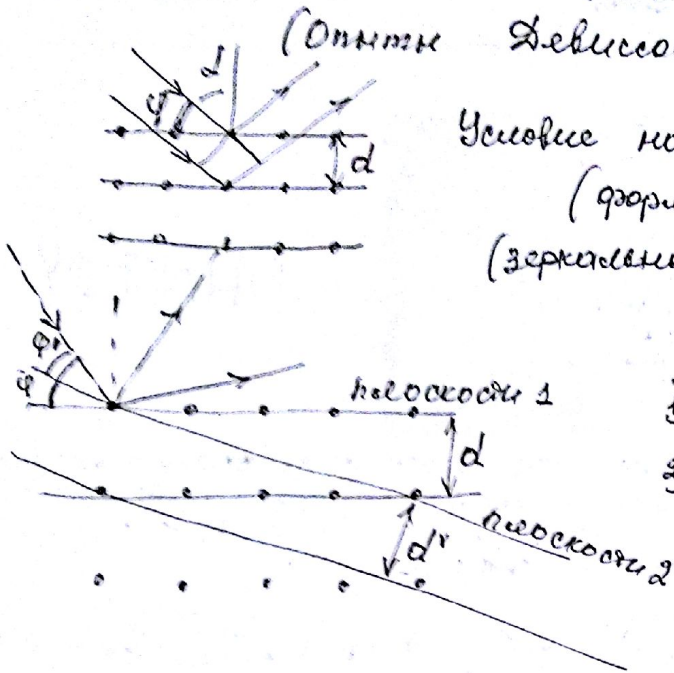 (Опыты Девиссо
α
φ
d
Условие на
(форм
(зеркальны
φ'
φ
плоскости 1
1
d
2
плоскости 2
d'